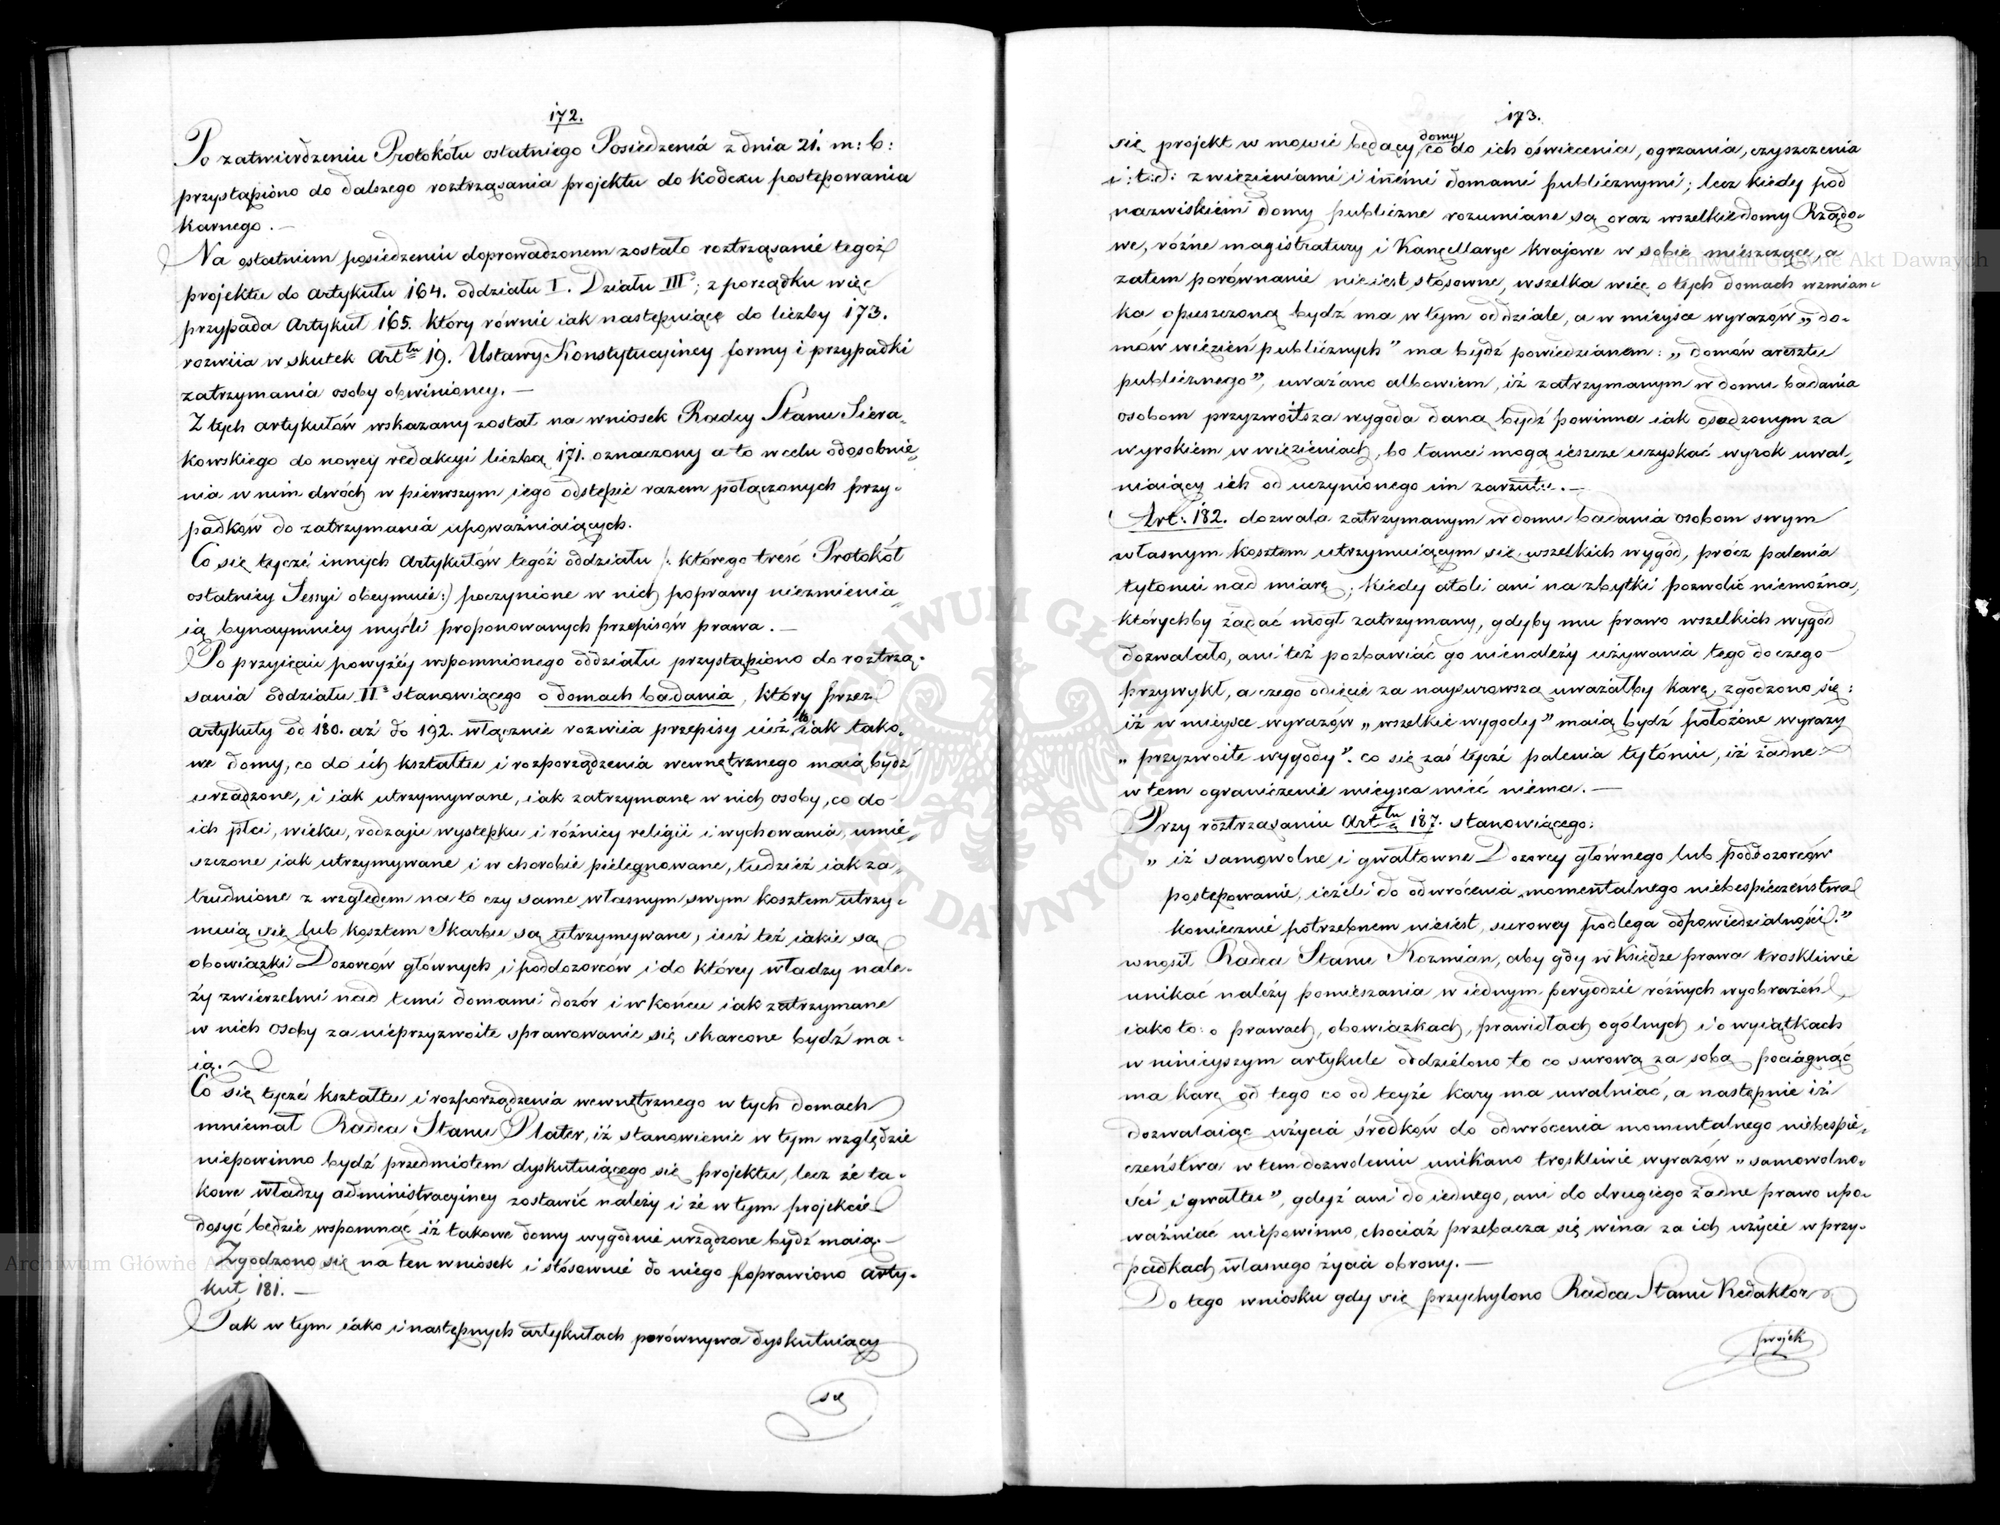 172.
Po zatwierdzeniu Protokółu ostatniego Posiedzenia z dnia 21. m: b:
przystąpiono do dalszego roztrząsania projektu do kodexu postępowania
karnego. —
Na ostatniem posiedzeniu doprowadzonem zostało roztrząsanie tegoż
projektu do artykułu 164. oddziału I. Działu III°; z porządku więc
przypada Artykuł 165. który równie iak następuiące do liczby 173.
rozwiia w skutek Art:tu 19. Ustawy Konstytucyiney formy i przypadki
zatrzymania osoby obwinioney. —
Z tych artykułów wskazany został na wniosek Radcy Stanu Siera„
kowskiego do nowey redakcyi liczbą 171. oznaczony a to w celu odosobnie„
nia w nim dwóch w pierwszym iego odstępie razem połączonych przy-
padków do zatrzymania upoważniaiących.
Co się tycze innych Artykułów tegoż oddziału /: którego treść Protokół
ostatniey Sessyi obeymuie:) poczynione w nich poprawy niezmienia„
ią bynaymniey myśli proponowanych przepisów prawa. —
Po przyięciu powyżey wspomnionego oddziału przystąpiono do roztrzą-
sania oddziału II° stanowiącego o domach badania, który przez
artykuły od 180. aż do 192. włącznie rozwiia przepisy iuż to iak tako-
we domy, co do ich kształtu i rozporządzenia wewnętrznego maią bydź
urządzone, i iak utrzymywane, iak zatrzymane w nich osoby, co do
ich płci, wieku, rodzaju występku i różnicy religii i wychowania, umie„
szczone iak utrzymywane i w chorobie pielęgnowane, tudzież iak za„
trudnione z względem na to czy same własnym swym kosztem utrzy-
muią się lub kosztem Skarbu są utrzymywane, iuż też iakie są
obowiązki Dozorców głównych i poddozorców i do którey władzy nale-
ży zwierzchni nad temi domami dozór i w końcu iak zatrzymane
w nich osoby za nieprzyzwoite sprawowanie się skarcone bydź ma-
ią. ~
Co się tycze kształtu i rozporządzenia wewnętrznego w tych domach
mniemał Radca Stanu Plater, iż stanowienie w tym względzie
niepowinno bydź przedmiotem dyskutuiącego się projektu, lecz że ta-
kowe władzy administracyiney zostawić należy i że w tym projekcie
dosyć będzie wspomnąć iż takowe domy wygodnie urządzone bydź maią. —
Zgodzono się na ten wniosek i stósownie do niego poprawiono arty-
kuł 181. —
Tak w tym iako i następnych artykułach porównywa dyskutuiący
się
173.
się projekt w mowie będący domy co do ich oświecenia, ogrzania, czyszczenia
i: t: d: z więzieniami i innemi domami publicznymi; lecz kiedy pod
nazwiskiem domy publiczne rozumiane są oraz wszelkie domy Rządo-
we, różne magistratury i Kancellarye krajowe w sobie mieszczące, a
zatem porównanie nieiest stósowne, wszelka więc o tych domach wzmian-
ka opuszczoną bydź ma w tym oddziale, a w mieysce wyrazów „do-
mów więzień publicznych” ma bydź powiedzianem: „domów aresztu
publicznego”, uważano albowiem, iż zatrzymanym w domu badania
osobom przyzwoitsza wygoda dana bydź powinna iak osadzonym za
wyrokiem w więzieniach, bo tamci mogą ieszcze uzyskać wyrok uwal„
niaiący ich od uczynionego im zarzutu. —
Art: 182. dozwala zatrzymanym w domu badania osobom swym
własnym kosztem utrzymuiącym się wszelkich wygód, prócz palenia
tytoniu nad miarę; kiedy atoli ani na zbytki pozwolić niemożna,
którychby żądać mógł zatrzymany, gdyby mu prawo wszelkich wygód
dozwalało, ani też pozbawiać go nienależy używania tego do czego
przywykł, a czego odięcie za naysurowszą uważałby karę, zgodzono się:
iż w mieysce wyrazów „wszelkie wygody” maią bydź położone wyrazy
„przyzwoite wygody”. co się zaś tycze palenia tytoniu, iż żadne
w tem ograniczenie mieysca mieć niema. —
Przy roztrząsaniu Art:tu 187. stanowiącego:
„iż samowolne i gwałtowne Dozorcy głównego lub poddozorców
postępowanie, ieżeli do odwrócenia momentalnego niebespieczeństwa
koniecznie potrzebnem nieiest, surowey podlega odpowiedzialności.”
wnosił Radca Stanu Kozmian, aby gdy w Księdze prawa troskliwie
unikać należy pomieszania w iednym peryodzie różnych wyobrażeń
iako to: o prawach, obowiązkach, prawidłach ogólnych i o wyiątkach
w ninieyszym artykule oddzielono to co surową za sobą pociągnąć
ma karę od tego co od teyże kary ma uwalniać, a następnie iż
dozwalaiąc użycia środków do odwrócenia momentalnego niebespie„
czeństwa w tem dozwoleniu unikano troskliwie wyrazów „samowolno-
ści i gwałtu”, gdyż ani do iednego, ani do drugiego żadne prawo upo-
ważniać niepowinno, chociaż przebacza się wina za ich użycie w przy-
padkach własnego życia obrony. —
Do tego wniosku gdy się przychylono Radca Stanu Redaktor
projek
Archiwum Główne Akt Dawnych
Archiwum Główne Akt Dawnych
ARCHIWUM GŁÓWNE AKT DAWNYCH